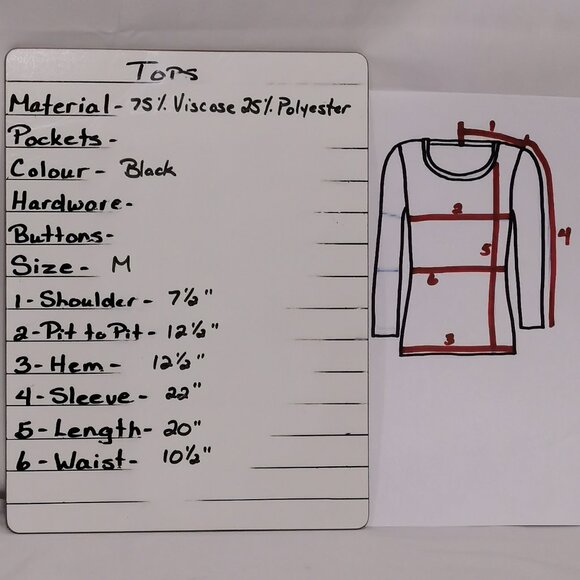 Tops
Material - 75% Viscose 25% Polyester
Pockets -
Colour - Black
Hardware -
Buttons -
Size - M
1 - Shoulder - 7½"
2 - Pit to Pit - 12½"
3 - Hem - 12½"
4 - Sleeve - 22"
5 - Length - 20"
6 - Waist - 10½"
1
2
4
5
6
3